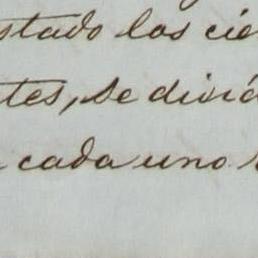 stado los cie
tes, se divid
cada uno